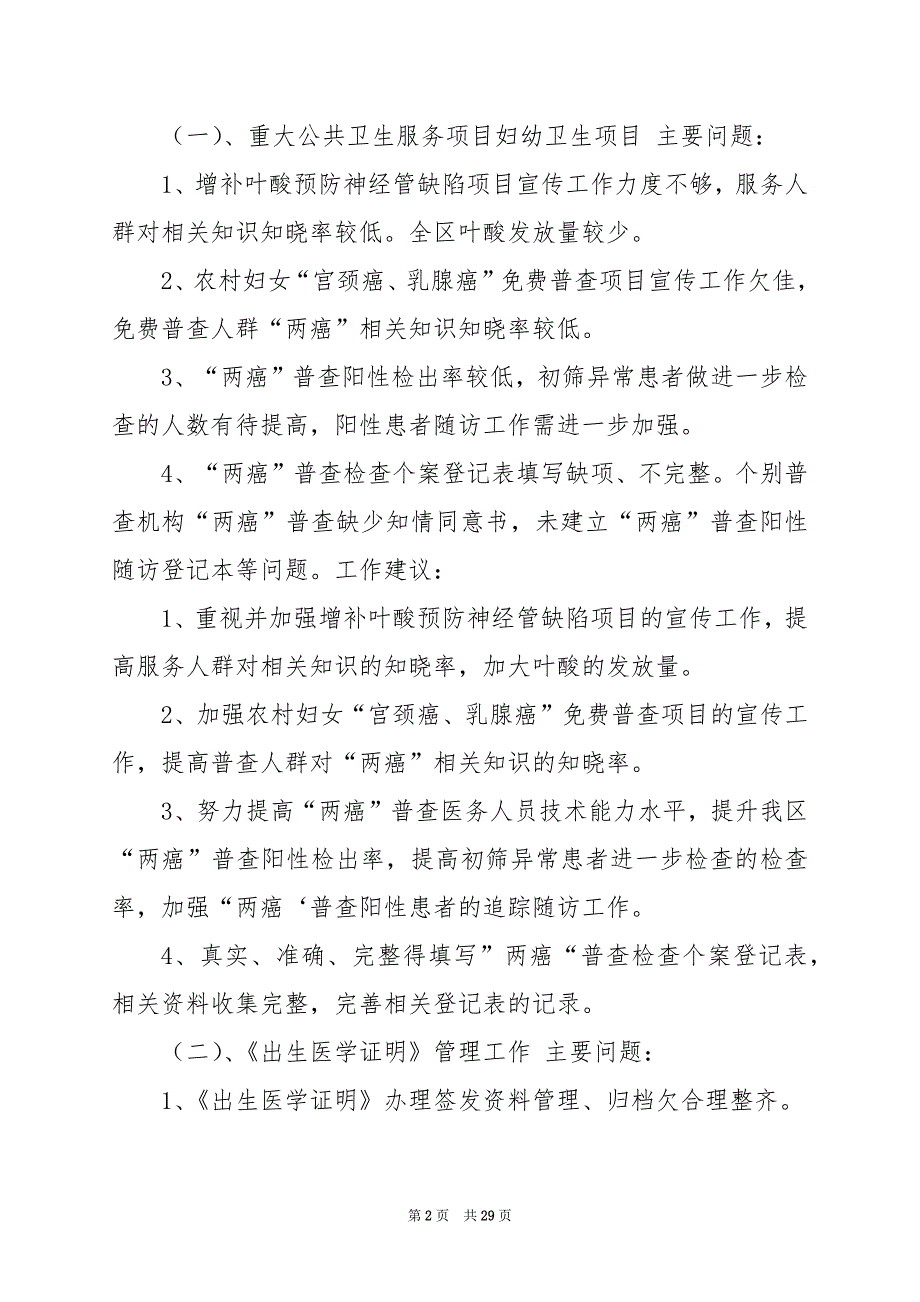 （一）、重大公共卫生服务项目妇幼卫生项目 主要问题：
1、增补叶酸预防神经管缺陷项目宣传工作力度不够，服务人
群对相关知识知晓率较低。全区叶酸发放量较少。
2、农村妇女“宫颈癌、乳腺癌”免费普查项目宣传工作欠佳，
免费普查人群“两癌”相关知识知晓率较低。
3、“两癌”普查阳性检出率较低，初筛异常患者做进一步检
查的人数有待提高，阳性患者随访工作需进一步加强。
4、“两癌”普查检查个案登记表填写缺项、不完整。个别普
查机构“两癌”普查缺少知情同意书，未建立“两癌”普查阳性
随访登记本等问题。工作建议：
1、重视并加强增补叶酸预防神经管缺陷项目的宣传工作，提
高服务人群对相关知识的知晓率，加大叶酸的发放量。
2、加强农村妇女“宫颈癌、乳腺癌”免费普查项目的宣传工
作，提高普查人群对“两癌”相关知识的知晓率。
3、努力提高“两癌”普查医务人员技术能力水平，提升我区
“两癌”普查阳性检出率，提高初筛异常患者进一步检查的检查
率，加强“两癌‘普查阳性患者的追踪随访工作。
4、真实、准确、完整得填写”两癌“普查检查个案登记表，
相关资料收集完整，完善相关登记表的记录。
（二）、《出生医学证明》管理工作 主要问题：
1、《出生医学证明》办理签发资料管理、归档欠合理整齐。
第 2 页 共 29 页